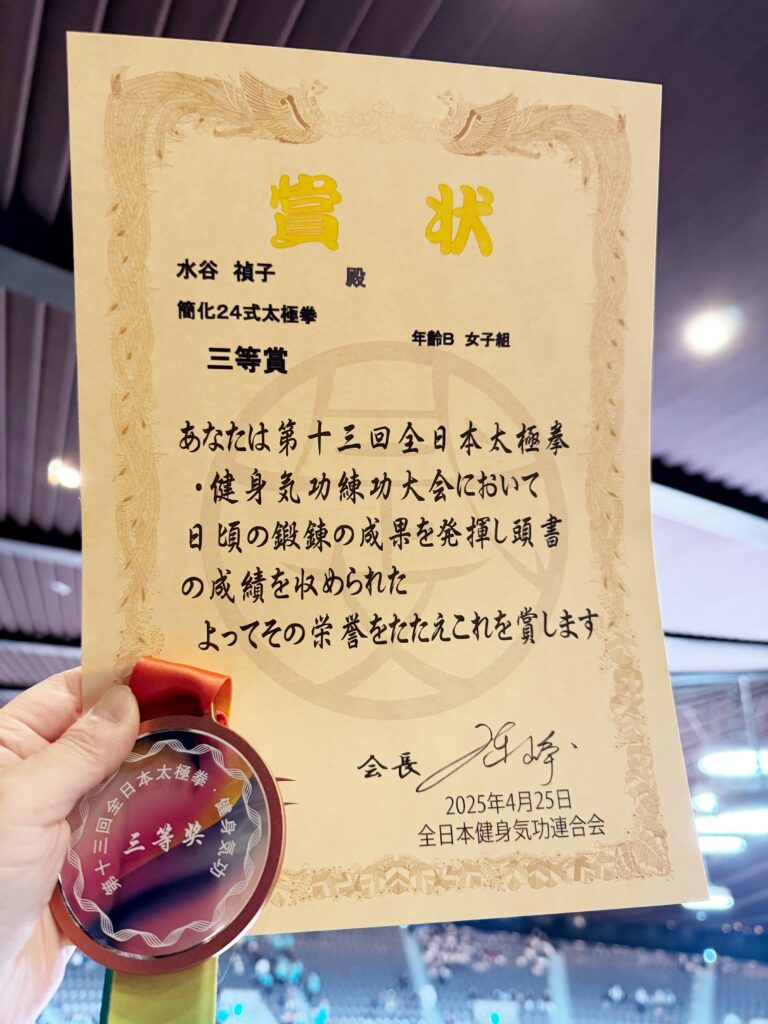 賞状
水谷 禎子 殿
簡化24式太極拳
年齢B 女子組
三等賞
あなたは第十三回全日本太極拳
・健身気功練功大会において
日頃の鍛錬の成果を発揮し頭書
の成績を収められた
よってその栄誉をたたえこれを賞します
会長
2025年4月25日
全日本健身気功連合会
第十三回全日本太極拳・健身気功
三等奖